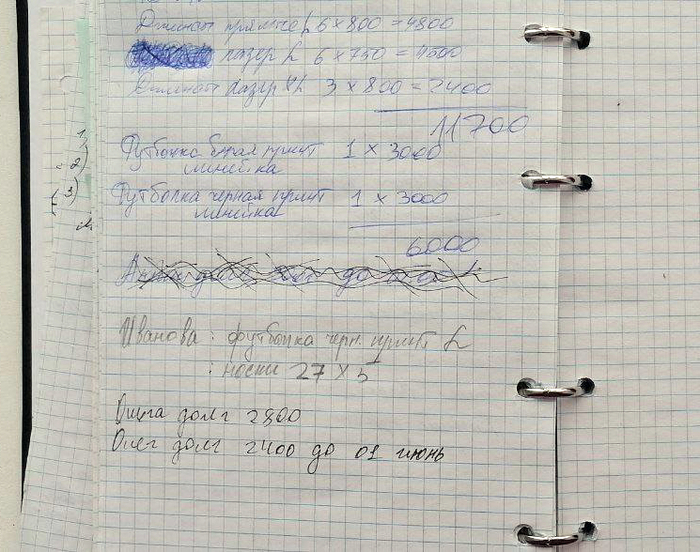 прямые L 6 x 800 = 4800
лазер L 6 x 750 = 4500
лазер XL 3 x 800 = 2400
11700
Футболка белая принт 1 x 3000
линейка
Футболка черная принт 1 x 3000
линейка
6000
Иванова : футболка черн. принт L
: носки 27 x 5
долг 2800
Олег долг 2400 до 01 июнь
1
2)
3)